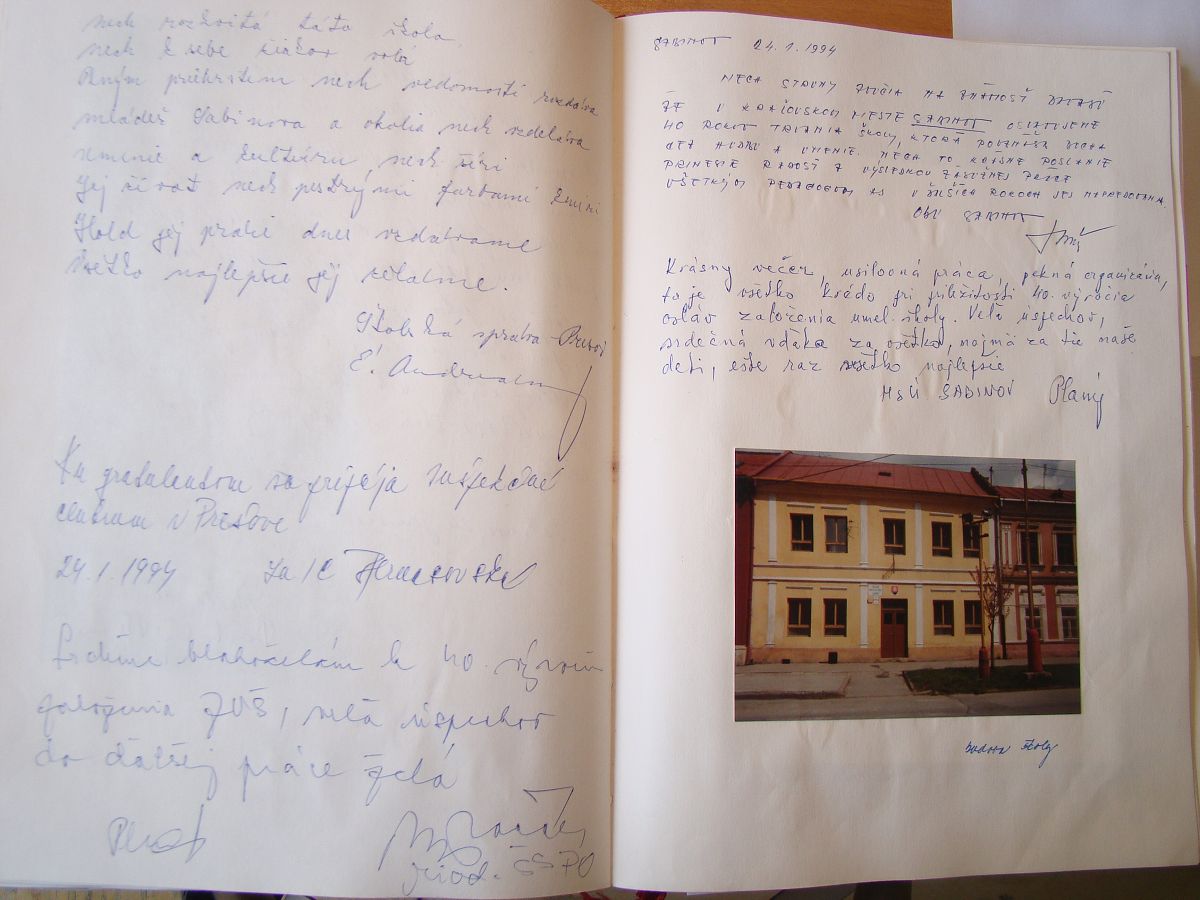 nech rozkvitá táto škola
nech k sebe žiakov volá
Plným priehrštím nech vedomosti rozdáva
mládež Sabinova a okolia nech vzdeláva
umenie a kultúru nech šíri
Jej život nech pestrými farbami
Hold jej práci dnes vzdávame
všetko najlepšie jej želáme.
Školská správa Prešov
E. Andraám
Ku gratulantom sa pripája
centrum v Prešove
24.1.1994 Za IC
Srdečne blahoželám k 40. výročiu
založenia ZUŠ, veľa úspechov
do ďalšej práce želá
riad. ŠSPO
SABINOV 24.1.1994
NECH STRUNY ZNEJÚ NA ZNÁMOSŤ DÁVAJÚ
ŽE V KRÁĽOVSKOM MESTE SABINOV OSLAVUJEME
40 ROKOV TRVANIA ŠKOLY, KTORÁ POVZNÁŠA DUCHA
CEZ HUDBU A UMENIE. NECH TO KRÁSNE POSLANIE
PRINESIE RADOSŤ Z VÝSLEDKOV ZÁSLUŽNEJ PRÁCE
VŠETKÝM PEDAGÓGOM AJ V ĎALŠÍCH ROKOCH JEJ NAPREDOVANIA.
OÚ SABINOV
Krásny večer, usilovná práca, pekná organizácia,
to je všetko krédo pri príležitosti 40. výročia
osláv založenia umel. školy. Veľa úspechov,
srdečná vďaka za všetko, najmä za tie naše
deti, ešte raz všetko najlepšie
MsÚ SABINOV Planý
budova školy